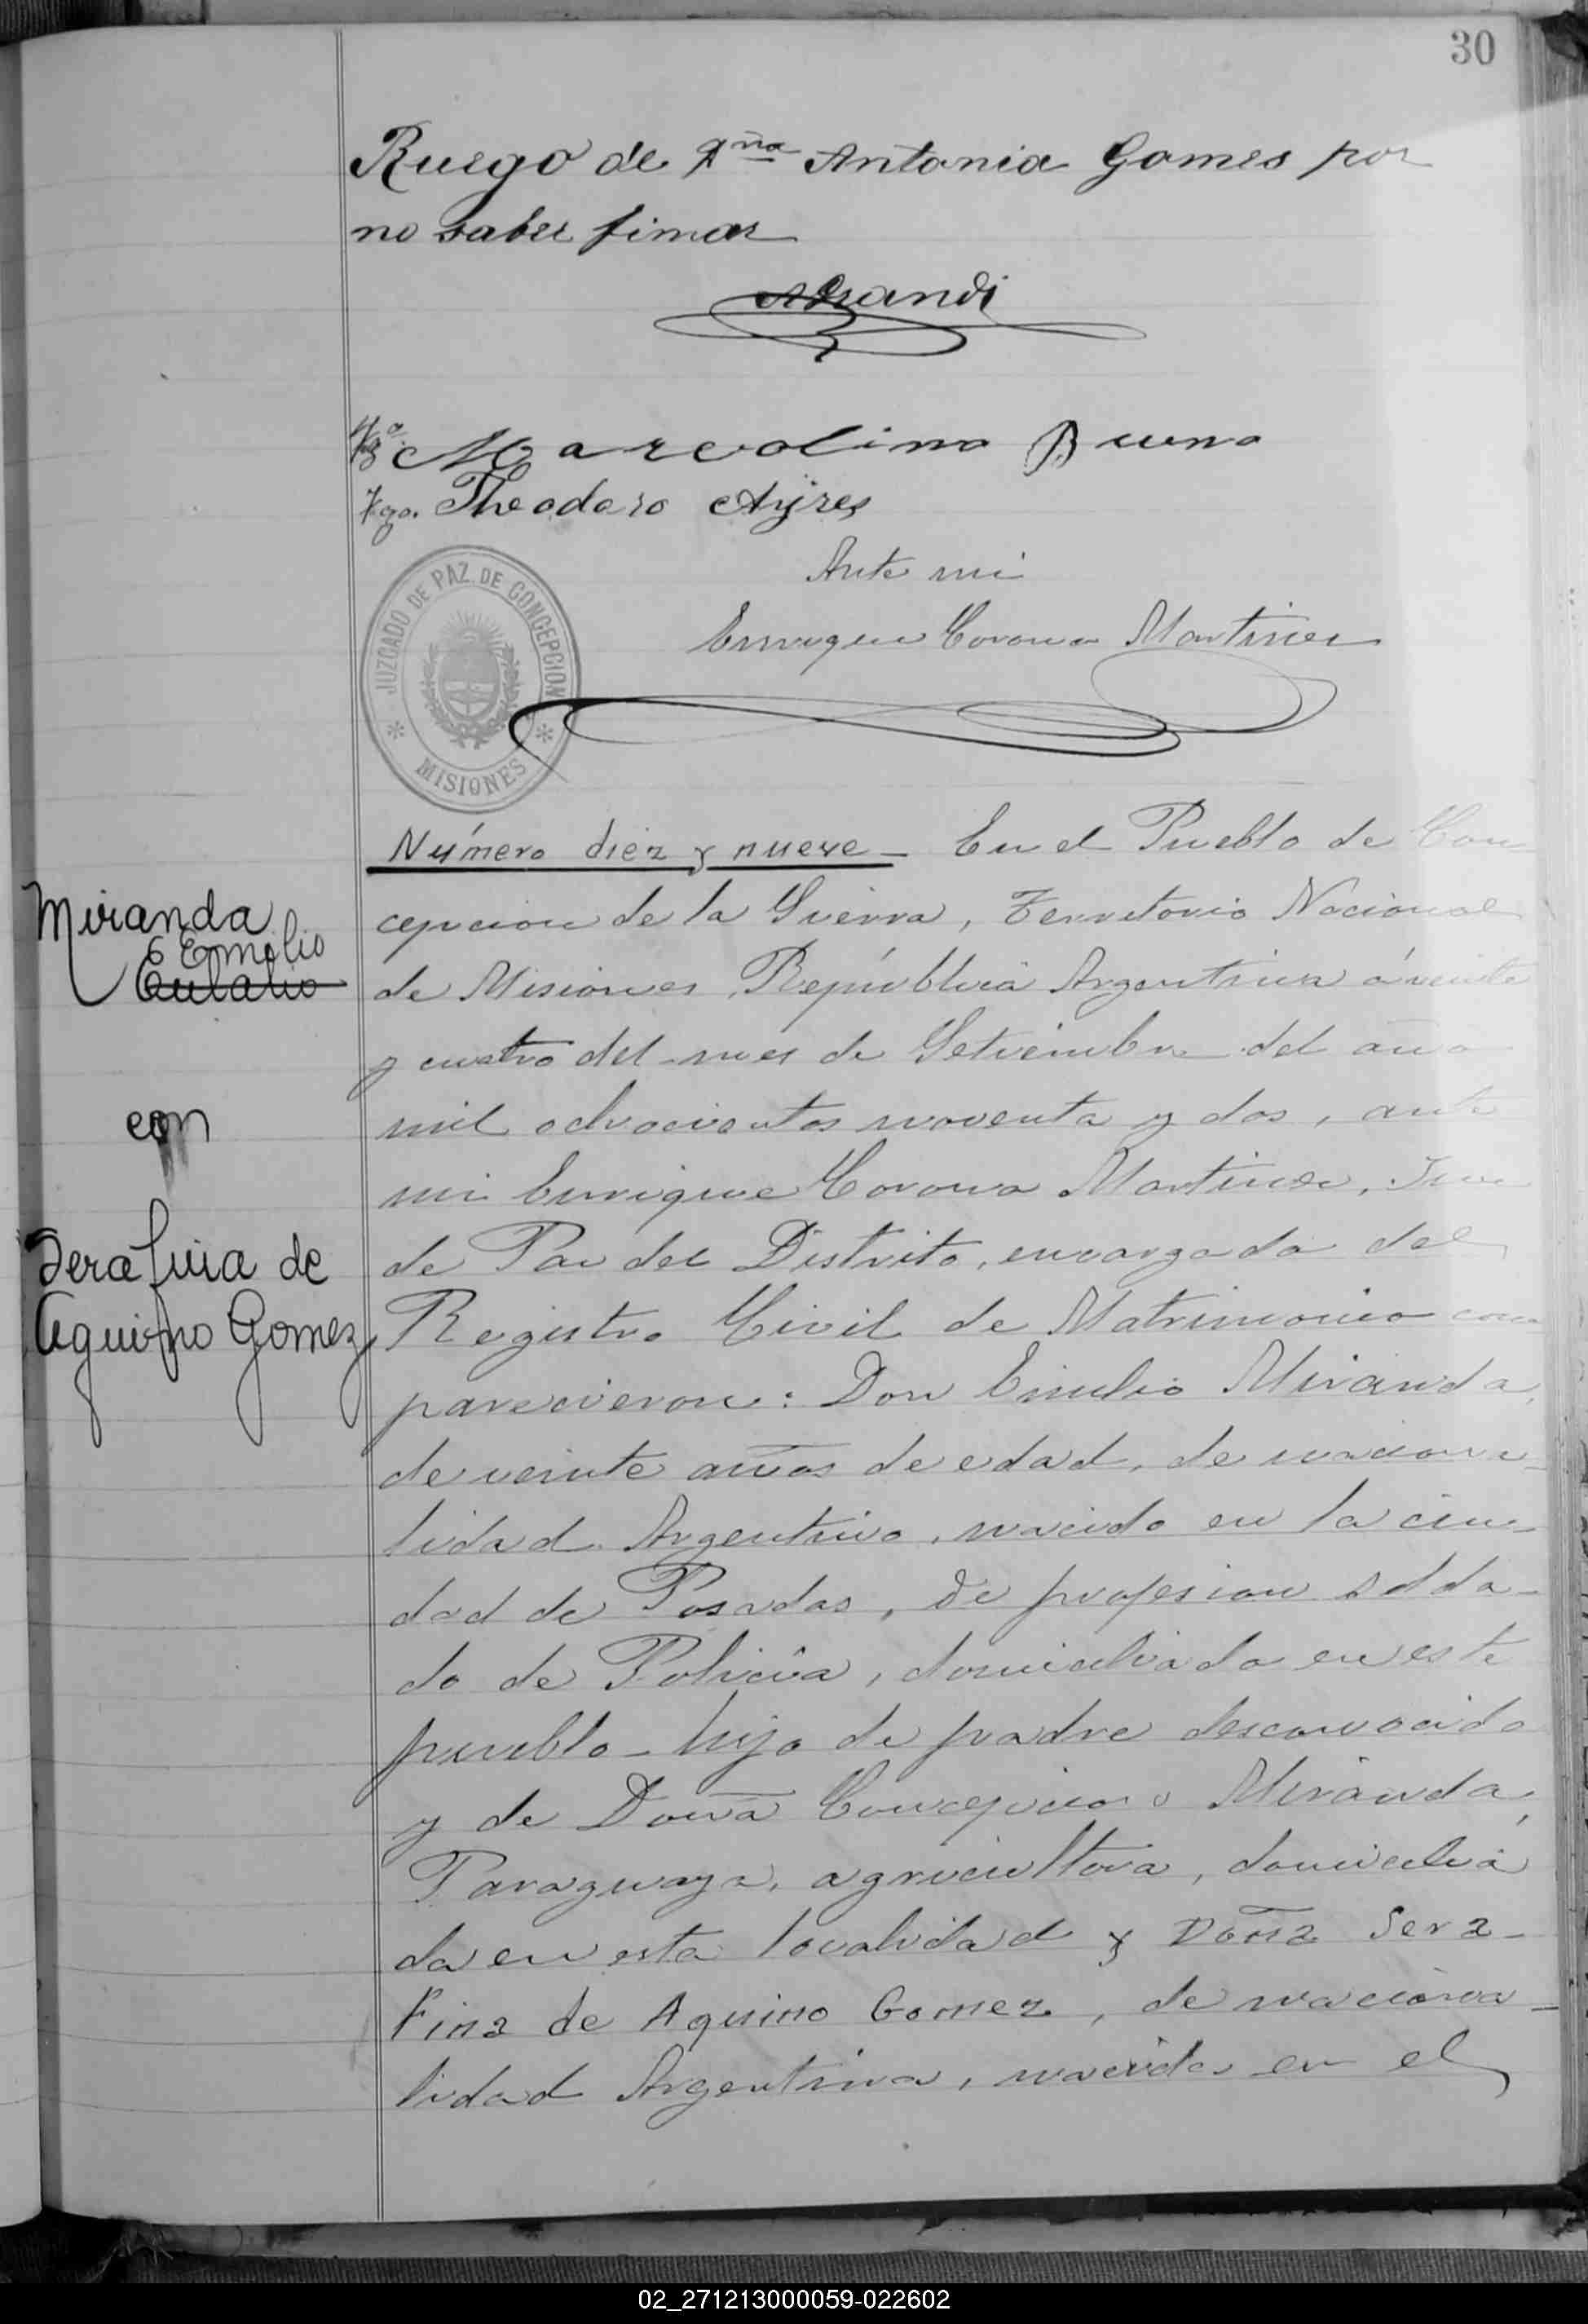 30
Ruego de Dña Antonia Gomes por
no saber fimar
Marcolino Bueno
Tgo. Theodoro Ayres
Ante mi
Enrique Corona Martinez
JUZGADO DE PAZ DE CONCEPCION
MISIONES
Número diez y nueve - En el Pueblo de Con
cepcion de la Sierra, Territorio Nacional
de Misiones, República Argentina á veinte
y cuatro del mes de Setiembre del año
mil ochocientos noventa y dos, ante
mi Enrique Corona Martinez, Juez
de Paz del Distrito, encargado del
Registro Civil de Matrimonio com
parecieron: Don Emilio Miranda,
de veinte años de edad, de naciona-
lidad Argentino, nacido en la ciu-
dad de Posadas, de profesion solda-
do de Policía, domiciliado en este
pueblo - hijo de padre desconocido
y de Doña Concepcion Miranda,
Paraguaya, agricultora, domicilia
da en esta localidad y Doña Sera-
fina de Aquino Gomez, de naciona-
lidad Argentina, nacida en el
Miranda
Emilio
Eulalio
con
Serafina de
Aquino Gomez
02_271213000059-022602